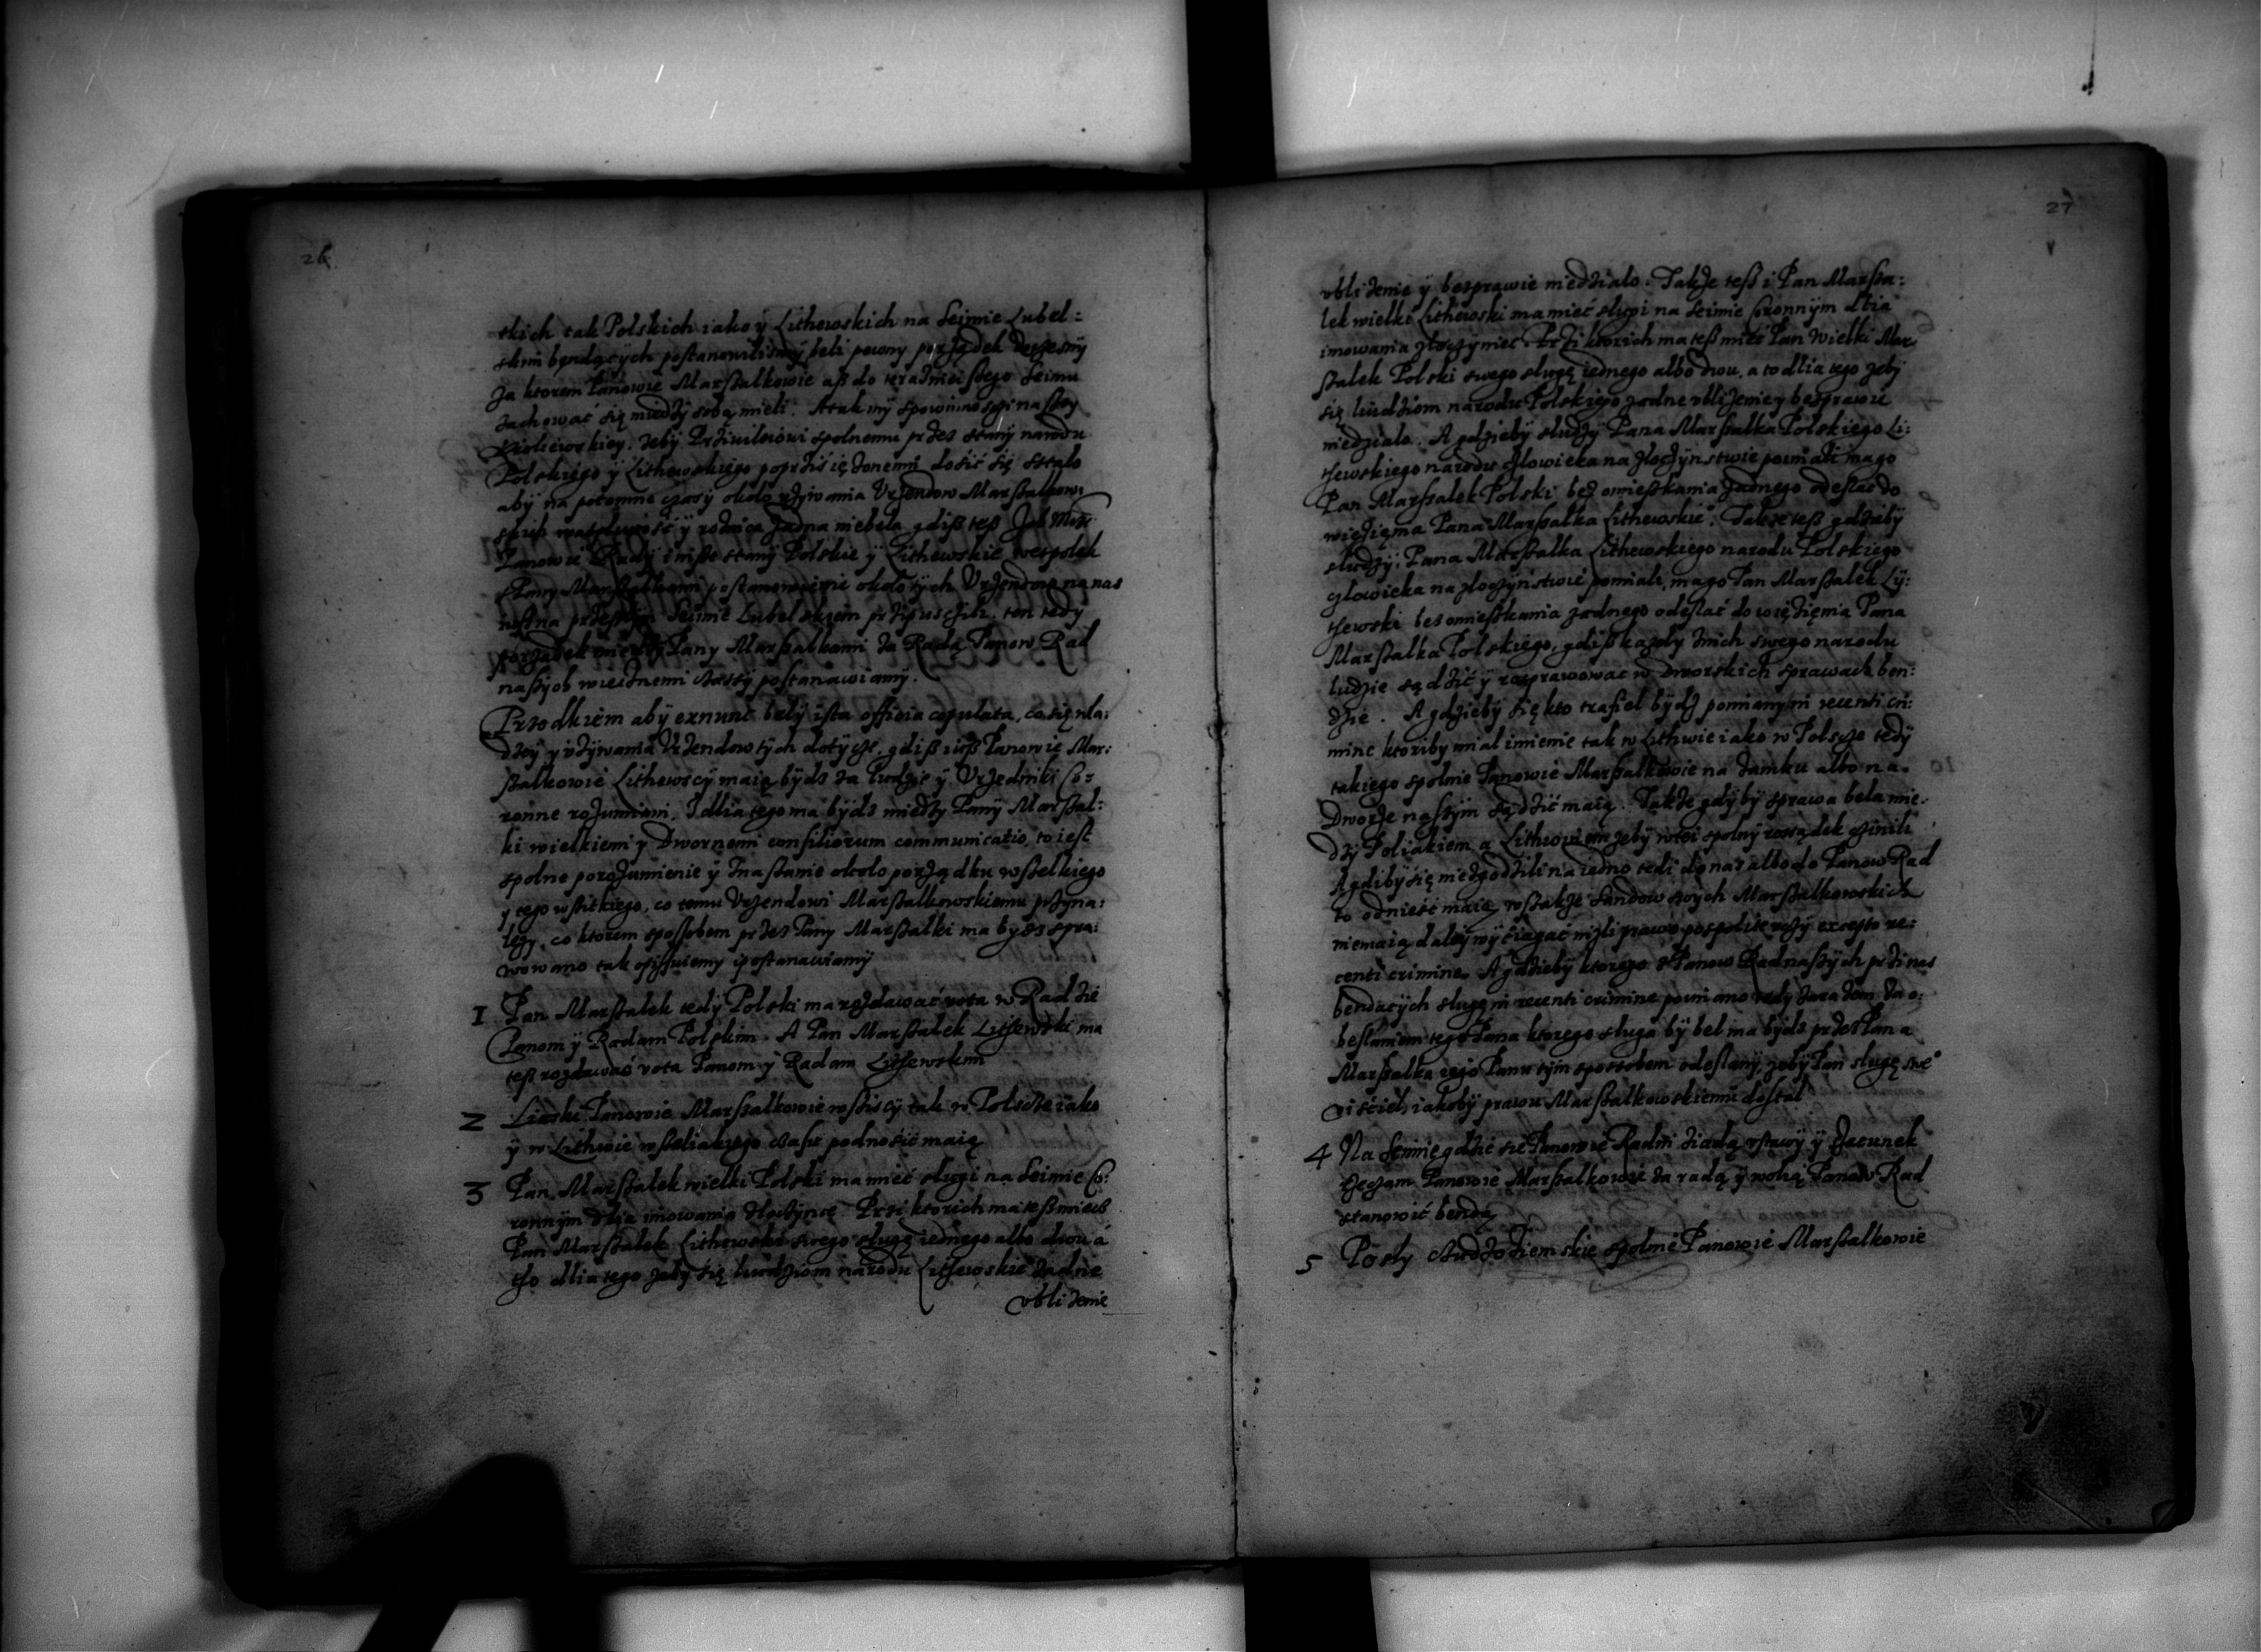 26
tkich tak Polskich iako y Lithewskich na Seimie Lubel=
skim bendących postanowilismy beli pewny porządek doczesny
za ktorem Panowie Marszalkowie asz do terazniejszego Seimu
zachować się miedzy sobą mieli. A tak my s powinnosczi naszey
Krolewskiey. zeby Prziwileiowi spolnemu przes stany narodu
Polskiego y Lithewskiego poprzisiężonemu dosić się sstalo
aby na potomne czasy okolo vżiwania Vrzendow Marszalkow:
skich wątpliwość y rożnica żadna niebela gdisz tesz Jch Mcz
Panowie Rady i insze stany Polskie y Lithewskie wespolek
s Pany Marszalkami postanowienie okolo tych Vrzendow na nas
na przeszlym Seimie Lubelskiem przipusczili. ten tedy
porządek miedzy Pany Marszalkami za Radą Panow Rad
naszych wiecznemi czassy postanawiamy.
Przodkiem aby exnunc bely ista officia copulata, co się wla:
dzey y vżywania Vrzendow tych dotycze, gdisz iusz Panowie Mar:
szalkowie Lithewscy maią bydz za ludzie y Vrzedniki Co=
ronne rozumiani. I dlia tego ma bydz miedzy Pany Marszal:
ki wielkiemi y Dwornemi consiliorum communicatio, to iest
spolne porozumienie y znaszanie okolo porządku wszelkiego
y tego wszitkiego, co temu Vrzendowi Marszalkowskiemu przyna:
leży. co ktorem sposobem przes Pany Marszalki ma bydz spra:
wowano tak opissuiemy i postanawiamy
1 Pan Marszalek tedy Polski ma rozdawać vota w Radzie
Panom y Radam Polskim. A Pan Marszalek Lithewski ma
tesz rozdawać vota Panom y Radam Lithewskim
2 Liaski Panowie Marszalkowie wsziscy tak w Polscze iako
y w Lithwie wszeliakiego czasu podnosić maią
3 Pan Marszalek wielki Polski ma mieć slugi na Seimie Co:
ronnym dlia imowania zloczyńcę. Przi ktorich ma tesz mieć
Pan Marszalek Lithewski swego slugę iednego albo dwu á
tho dlia tego żeby się ludziom narodu Lithewskie żadne
vbliżenie
27
vbliżenie y besprawie niedzialo. Takze tesz i Pan Marsza:
lek wielki Lithewski ma mieć slugi na Seimie Coronnym dlia
imowania zloczyniec. Przi ktorich ma tesz mieć Pan Wielki Mar
szalek Polski swego slugę iednego albo dwu. a to dlia tego zeby
się ludziom narodu Polskiego zadne vbliżenie y besprawie
niedzialo. A gdzieby sludzy Pana Marszalka Polskiego Li:
thewskiego narodu czlowieka na zloczynstwie poimali ma go
Pan Marszalek Polski bez omieszkania żadnego odeslać do
więzięnia Pana Marszalka Lithewskie°. Takze tesz gdzieby
sludzy Pana Marszalka Lithewskiego narodu Polskiego
czlowieka na zloczynstwie poimali, ma go Pan Marszalek Ly:
thewski bes omieszkania zadnego odeslać do więzięnia Pana
Marszalka Polskiego, gdisz kazdy znich swego narodu
ludzie sądzić y rosprawować w Dworskich sprawach ben:
dzie. A gdzieby się kto trafiel bydz poimanym in recenti cri:
mine ktoriby mial imienie tak w Lithwie iako w Polscze tedy
takiego spolnie Panowie Marszalkowie na Zamku albo na
Dworze naszym sądzić maią. Takze gdyby sprawa bela mie:
dzy Poliakiem a Lithwinem zeby wtei spolny rossądek czinili
A gdiby się niezgodzili na iedno tedi do nas albo do Panow Rad
to odnieść maią, wszakze Sandow swych Marszalkowskich
niemaią daley wyciągać niżli prawo pospolite vczy excepto re:
centi crimine. A gdzieby ktorego s Panow Rad naszych przi nas
bendacych slugę in recenti crimine poimano tedy zarazem za o:
beslaniem tego Pana ktorego sluga by bel ma bydz przes Pana
Marszalka iego Panu tym sposobem odeslany, zeby Pan slugę swe°
iakoby prawu Marszalkowskiemu dostal
4 Na Seimie gdzie sie Panowie Radni ziadą vstawy y szacunek
rzeczam Panowie Marszalkowie za radą y wolią Panow Rad
stanowić bendą
5 Posly Cudzoziemskie spolnie Panowie Marszalkowie